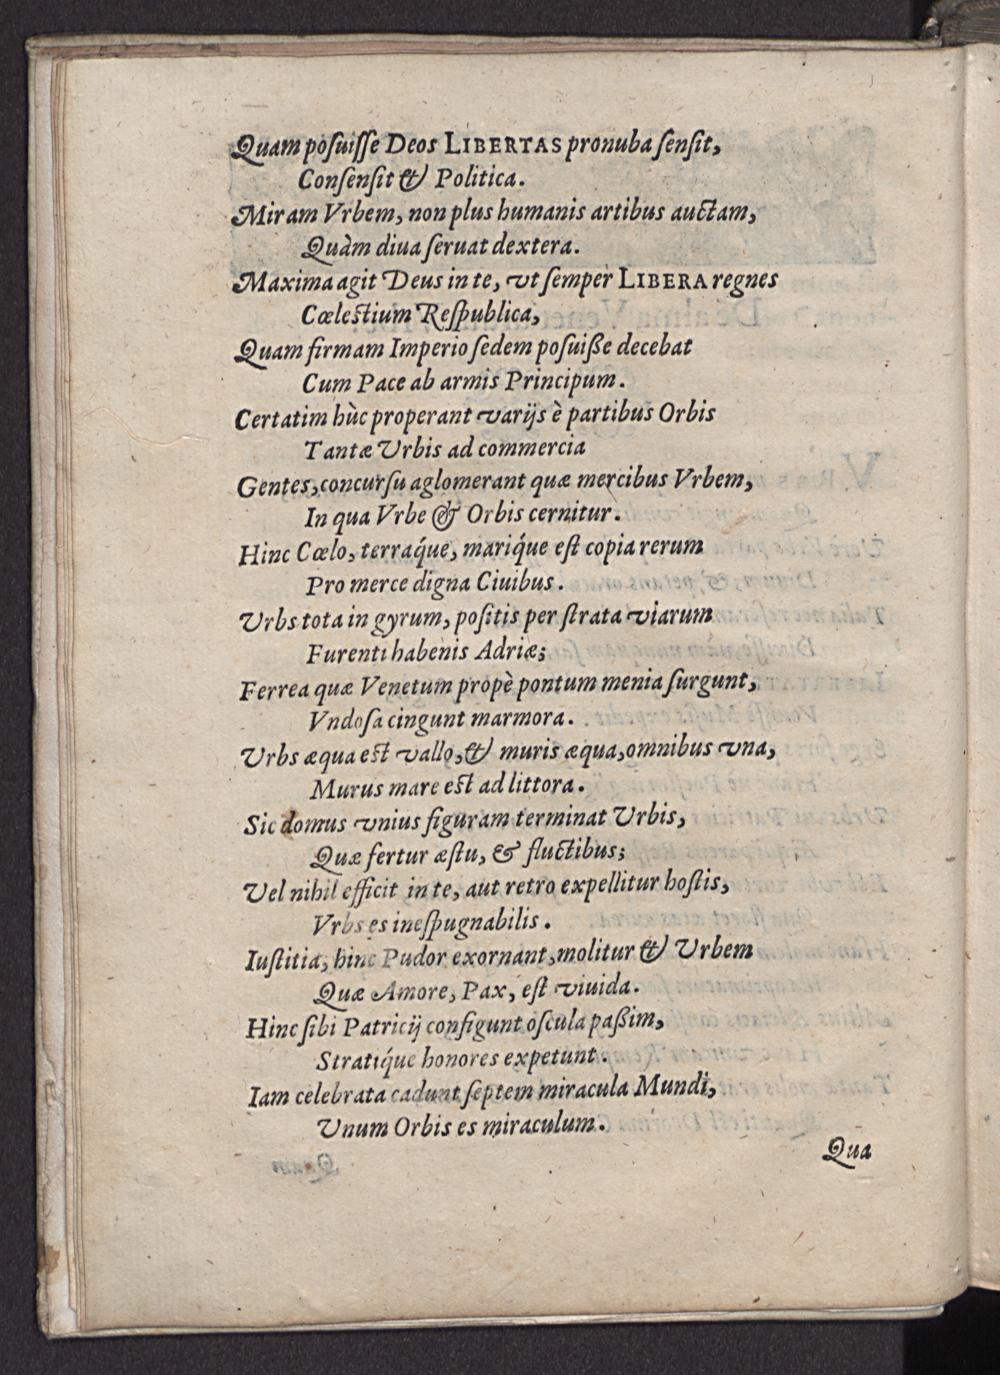 Quam posuisse Deos LIBERTAS pronuba sensit,
Consensit & Politica.
Miram Vrbem, non plus humanis artibus auctam,
Quàm diua seruat dextera.
Maxima agit Deus in te, vt semper LIBERA regnes
Cœlestium Respublica,
Quam firmam Imperio sedem posuiße decebat
Cum Pace ab armis Principum.
Certatim hùc properant varijs è partibus Orbis
Tantæ Vrbis ad commercia
Gentes, concursu aglomerant quæ mercibus Vrbem,
In qua Vrbe & Orbis cernitur.
Hinc Cœlo, terraq́ue, mariq́ue est copia rerum
Pro merce digna Ciuibus.
Vrbs tota in gyrum, positis per strata viarum
Furenti habenis Adriæ;
Ferrea quæ Venetum propè pontum menia surgunt,
Vndosa cingunt marmora.
Vrbs æqua est vallo, & muris æqua, omnibus vna,
Murus mare est ad littora.
Sic domus vnius figuram terminat Vrbis,
Quæ fertur æstu, & fluctibus;
Vel nihil efficit in te, aut retro expellitur hostis,
Vrbs es inespugnabilis.
Iustitia, hinc Pudor exornant, molitur & Vrbem
Quæ Amore, Pax, est viuida.
Hinc sibi Patricij configunt oscula paßim,
Stratiq́ue honores expetunt.
Iam celebrata cadunt septem miracula Mundi,
Vnum Orbis es miraculum.
Qua